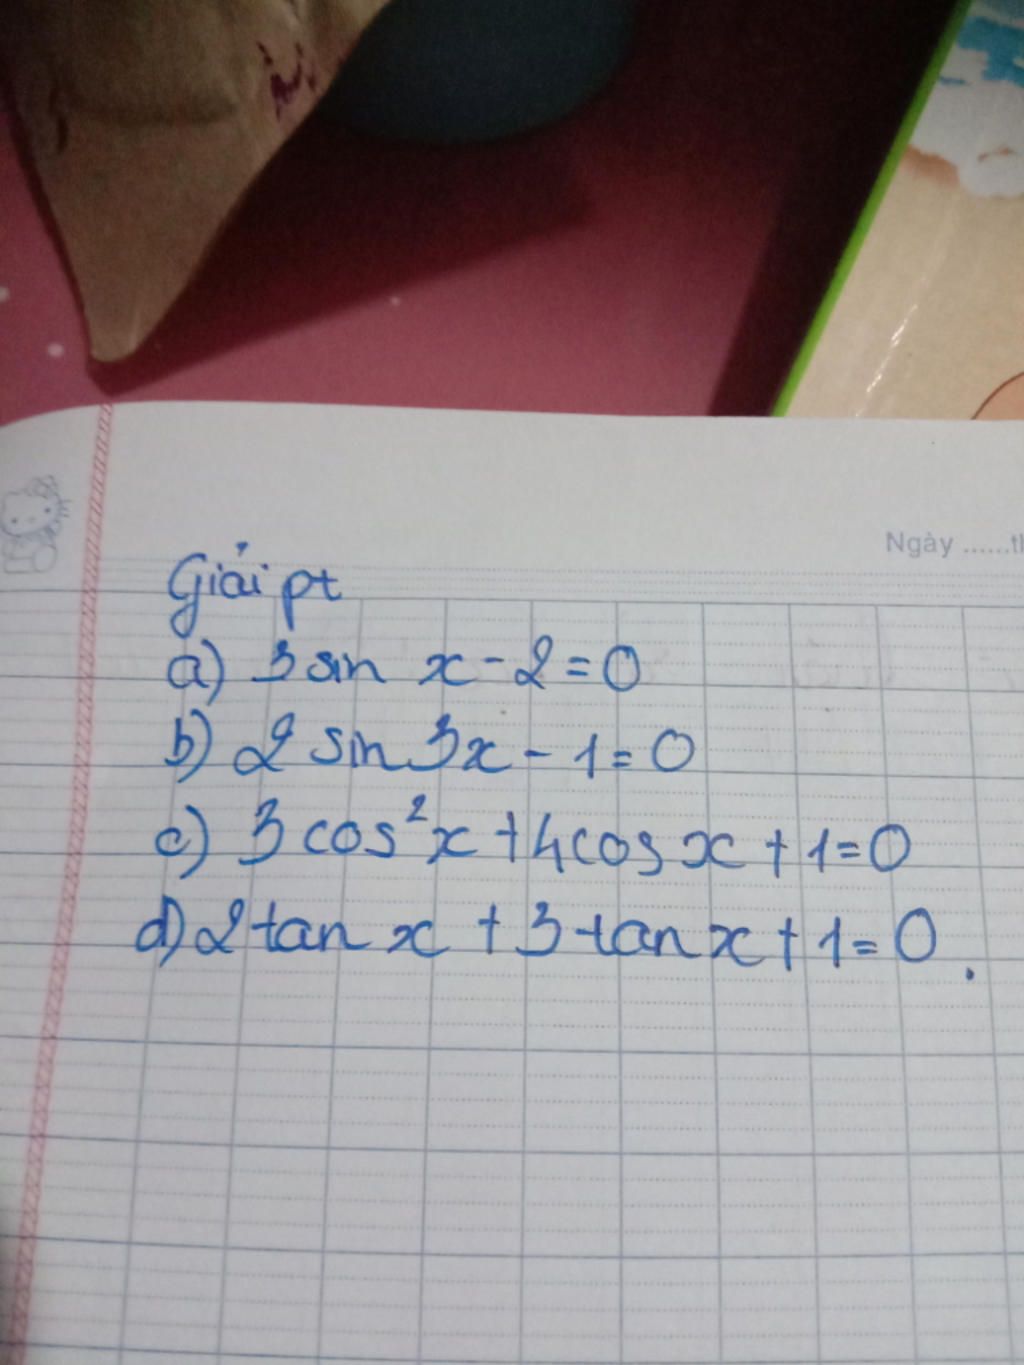 Ngày ......th
Giải pt
a) 3 sin x - 2 = 0
b) 2 sin 3x - 1 = 0
c) 3 cos²x + 4 cos x + 1 = 0
d) 2 tan x + 3 tan x + 1 = 0.